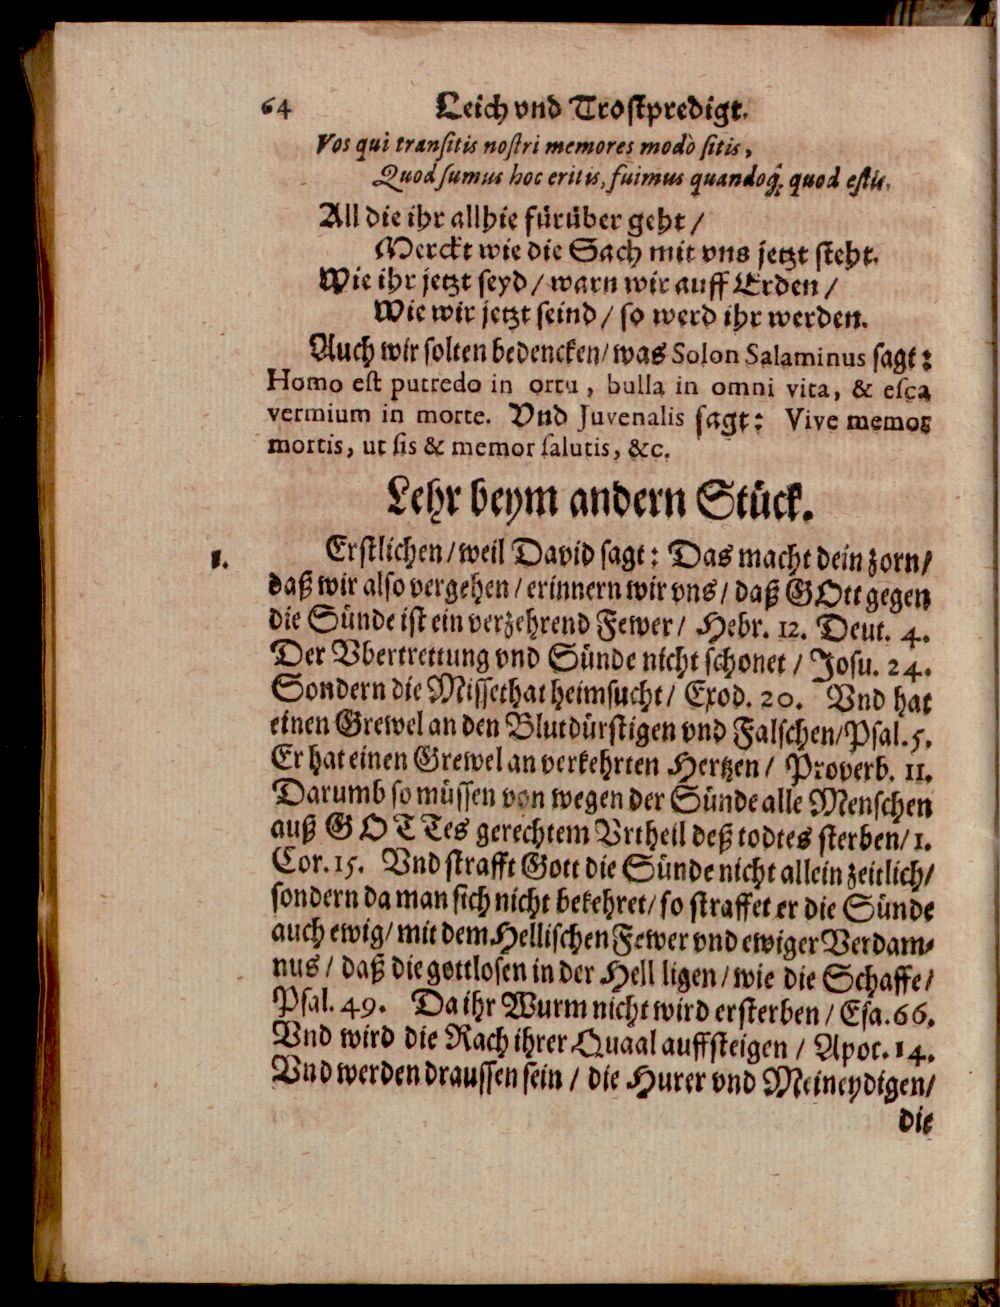 64 Leich vnd Trostpredigt.
Vos qui transitis nostri memores modò sitis,
Quod sumus hoc eritis, fuimus quandoq; quod estis.
All die ihr allhie fürüber geht /
Merckt wie die Sach mit vns jetzt steht.
Wie ihr jetzt seyd / warn wir auff Erden /
Wie wir jetzt seind / so werd ihr werden.
Auch wir solten bedencken / was Solon Salaminus sagt:
Homo est putredo in ortu, bulla in omni vita, & esca
vermium in morte. Vnd Juvenalis sagt: Vive memor
mortis, ut sis & memor salutis, &c.
Lehr beym andern Stück.
1. Erstlichen / weil David sagt: Das macht dein zorn /
daß wir also vergehen / erinnern wir vns / daß GOtt gegen
die Sünde ist ein verzehrend Fewer / Hebr. 12. Deut. 4.
Der Vbertrettung vnd Sünde nicht schonet / Josu. 24.
Sondern die Missethat heimsucht / Exod. 20. Vnd hat
einen Grewel an den Blutdürstigen vnd Falschen / Psal. 5.
Er hat einen Grewel an verkehrten Hertzen / Proverb. 11.
Darumb so müssen von wegen der Sünde alle Menschen
auß GOTTes gerechtem Vrtheil deß todtes sterben / 1.
Cor. 15. Vnd strafft Gott die Sünde nicht allein zeitlich /
sondern da man sich nicht bekehret / so straffet er die Sünde
auch ewig / mit dem Hellischen Fewer vnd ewiger Verdam-
nus / daß die gottlosen in der Hell ligen / wie die Schaffe /
Psal. 49. Da ihr Wurm nicht wird ersterben / Esa. 66.
Vnd wird die Rach ihrer Quaal auffsteigen / Apoc. 14.
Vnd werden draussen sein / die Hurer vnd Meineydigen /
die